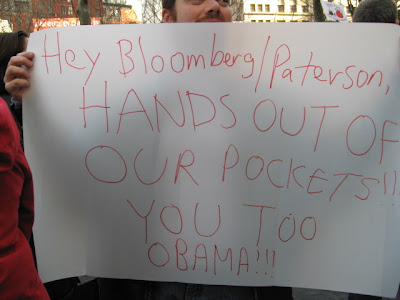 Hey Bloomberg/Paterson,
HANDS OUT OF
OUR POCKETS!!!
YOU TOO
OBAMA!!!